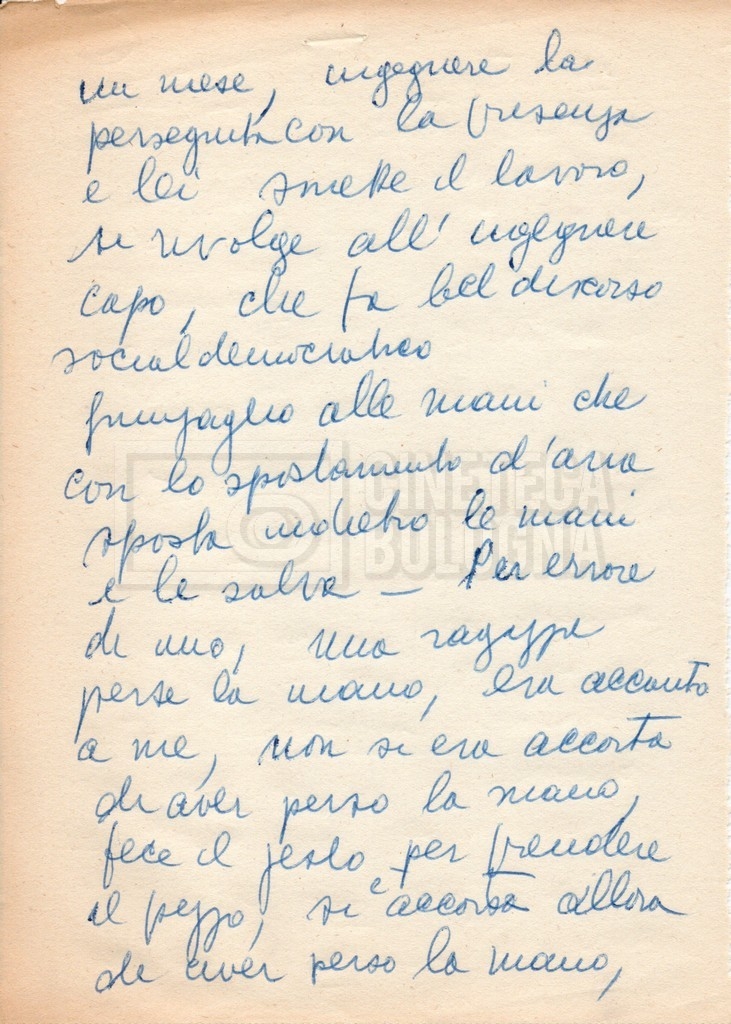 un mese, ingegnere la
perseguita con la presenza
e lei smette il lavoro,
si rivolge all'ingegnere
capo, che fa bel discorso
socialdemocratico
alle mani che
con lo spostamento d'aria
sposta indietro le mani
e le salva — Per errore
di uno, una ragazza
perse la mano, era accanto
a me, non si era accorta
di aver perso la mano,
fece il gesto per prendere
il pezzo, si è accorta allora
di aver perso la mano,
CINETECA
BOLOGNA